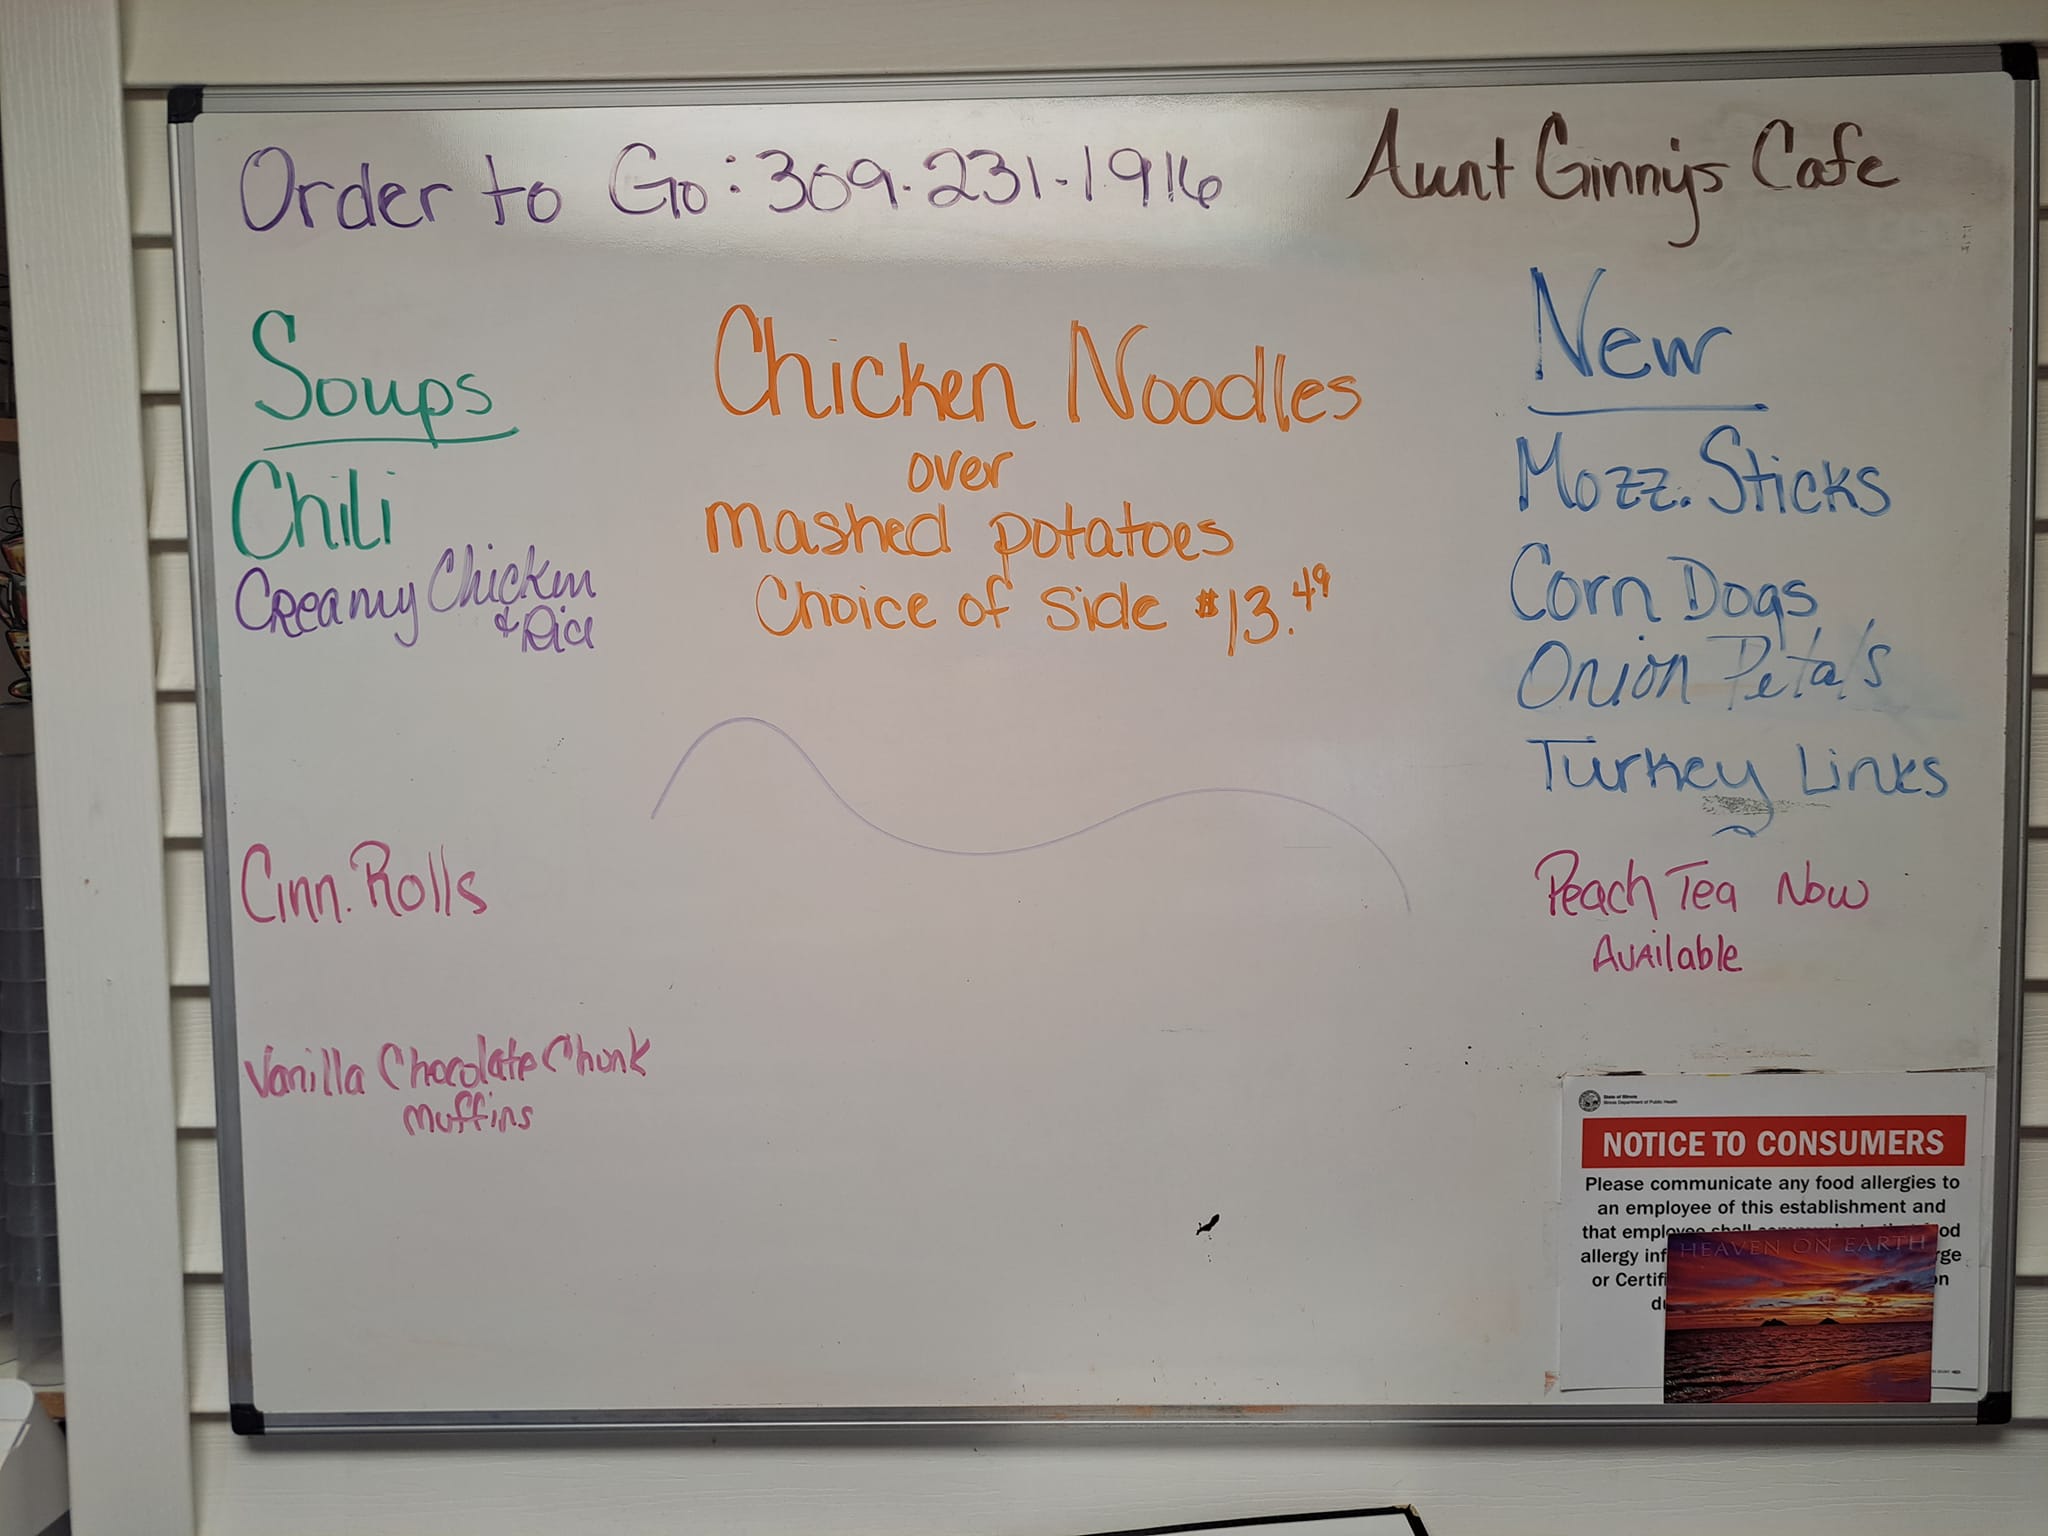 Order to Go: 309-231-1916
Aunt Ginny's Cafe
Soups
Chili
Creamy Chicken
& Rice
Cinn. Rolls
Vanilla Chocolate Chunk
Muffins
Chicken Noodles
over
mashed potatoes
Choice of Side $13.49
New
Mozz. Sticks
Corn Dogs
Onion Petals
Turkey Links
Peach Tea Now
Available
State of Illinois
Illinois Department of Public Health
NOTICE TO CONSUMERS
Please communicate any food allergies to
an employee of this establishment and
that employee shall
allergy
or
HEAVEN ON EARTH